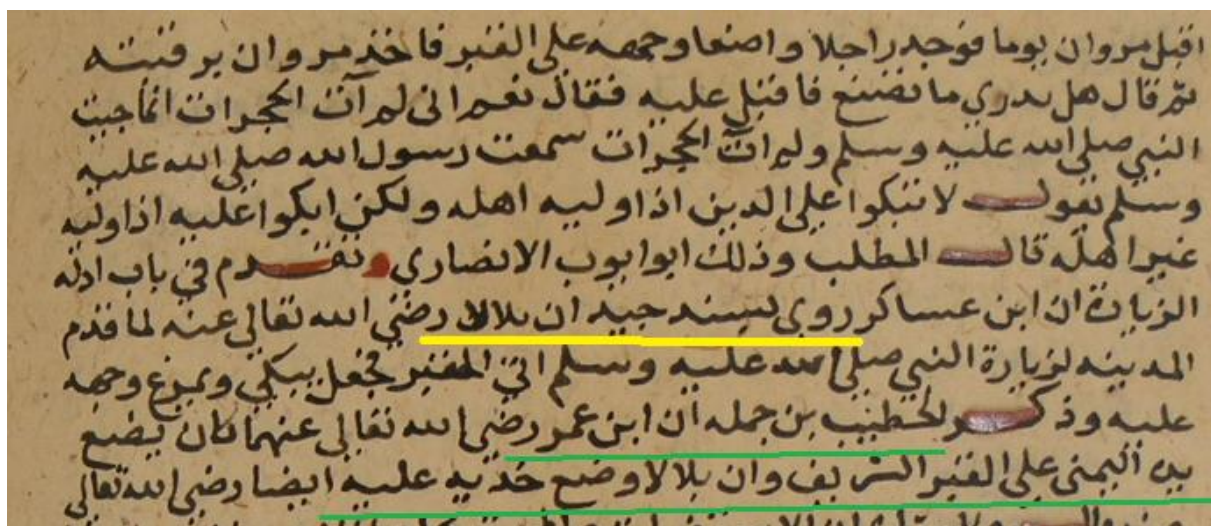 اقبل مروان يوما فوجد رجلا واضعا وجهه على القبر فاخذ مروان برقبته
ثم قال هل تدري ما تصنع فاقبل عليه فقال نعم اني لم آت الحجر انما جيت
النبي صلى الله عليه وسلم ولم آت الحجر سمعت رسول الله صلى الله عليه
وسلم يقول لا تبكوا على الدين اذا وليه اهله ولكن ابكوا عليه اذا وليه
غير اهله قال المطلب وذلك ابو ايوب الانصاري وتقدم في باب ادلة
الزيارة ان ابن عساكر روى بسند جيد ان بلالا رضي الله تعالى عنه لما قدم
المدينه لزيارة النبي صلى الله عليه وسلم اتى القبر فجعل يبكي ويمرغ وجهه
عليه وذكر الخطيب بن جمله ان ابن عمر رضي الله تعالى عنهما كان يضع
يده اليمنى على القبر الشريف وان بلالا وضع خديه عليه ايضا رضي الله تعالى